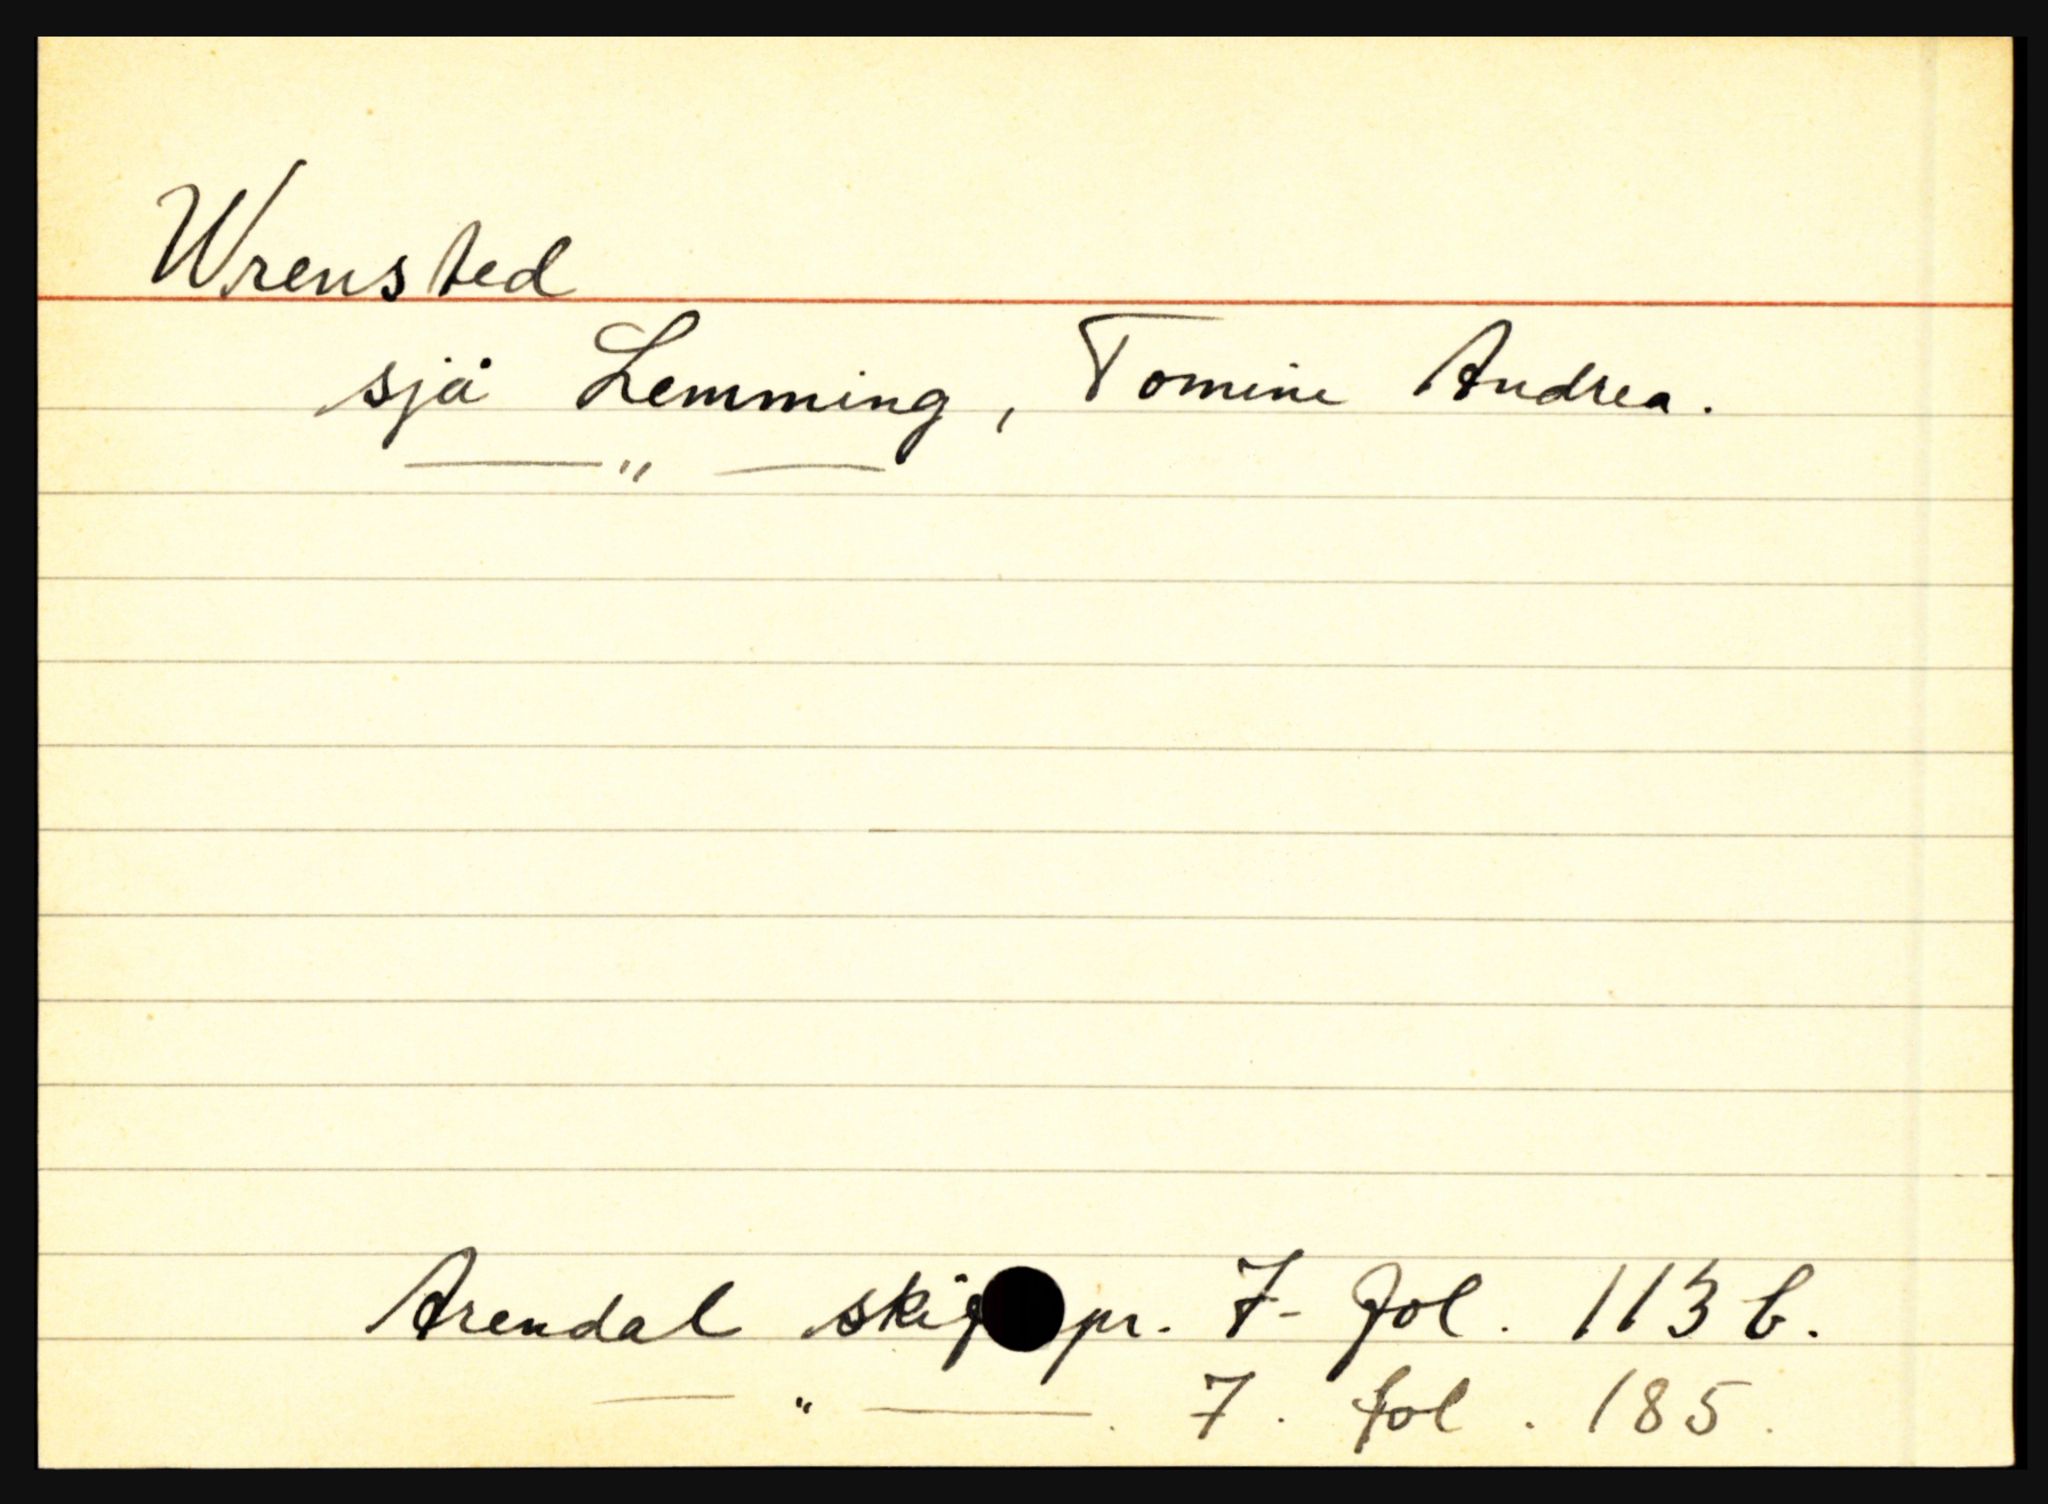 Wrensted
sjå Lemming, Tomine Andrea.
— " —
Arendal skif pr. 7- fol. 113 b.
— " — . 7. fol. 185.